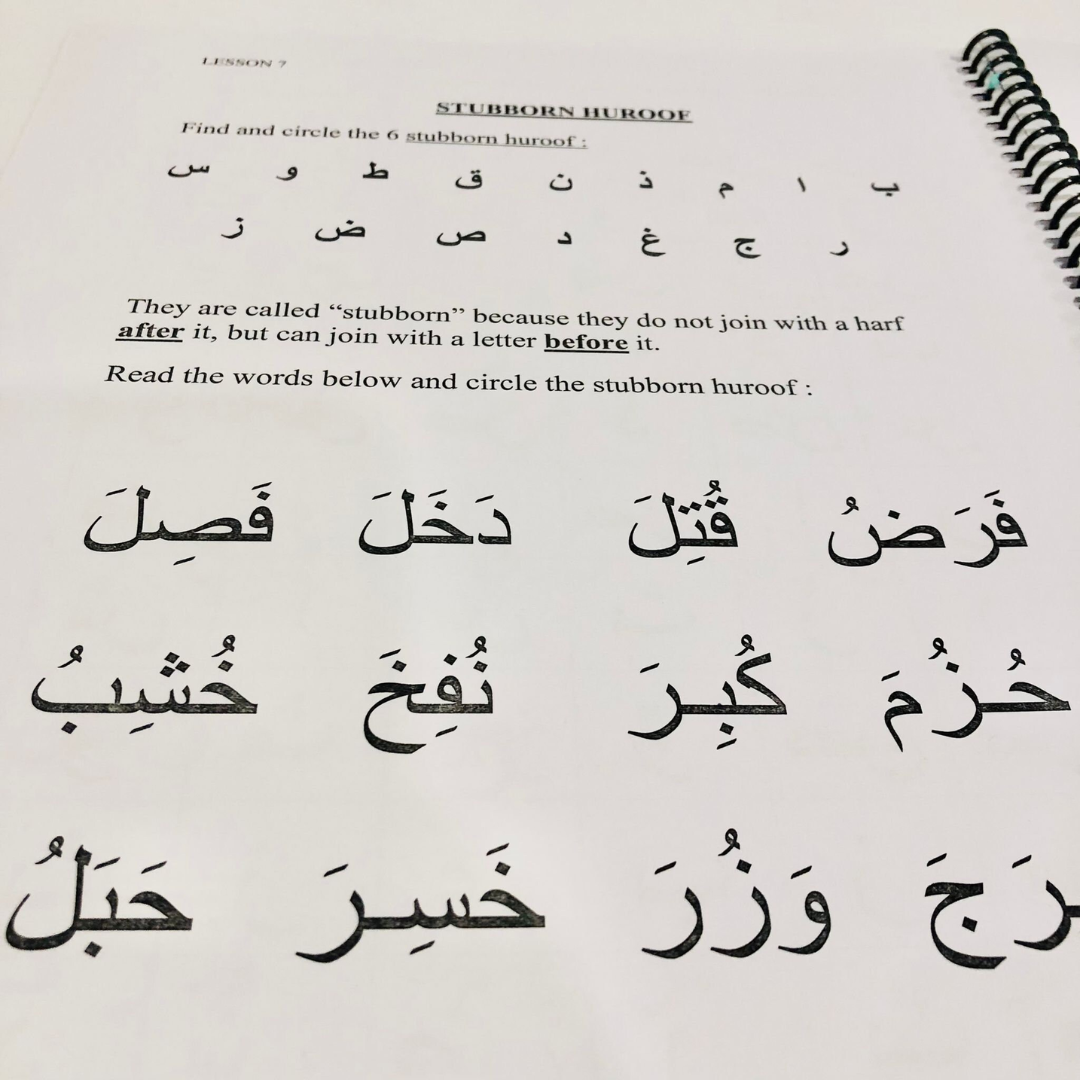 LESSON 7
STUBBORN HUROOF
Find and circle the 6 stubborn huroof :
ب ا م ذ ن ق ط و س
ر ج غ د ص ض ز
They are called “stubborn” because they do not join with a harf
after it, but can join with a letter before it.
Read the words below and circle the stubborn huroof :
فَرَضُ قُتِلَ دَخَلَ فَصِلَ
حُزُمَ كُبِرَ نُفِخَ خُشِبُ
رَجَ وَزُرَ خَسِرَ حَبَلُ